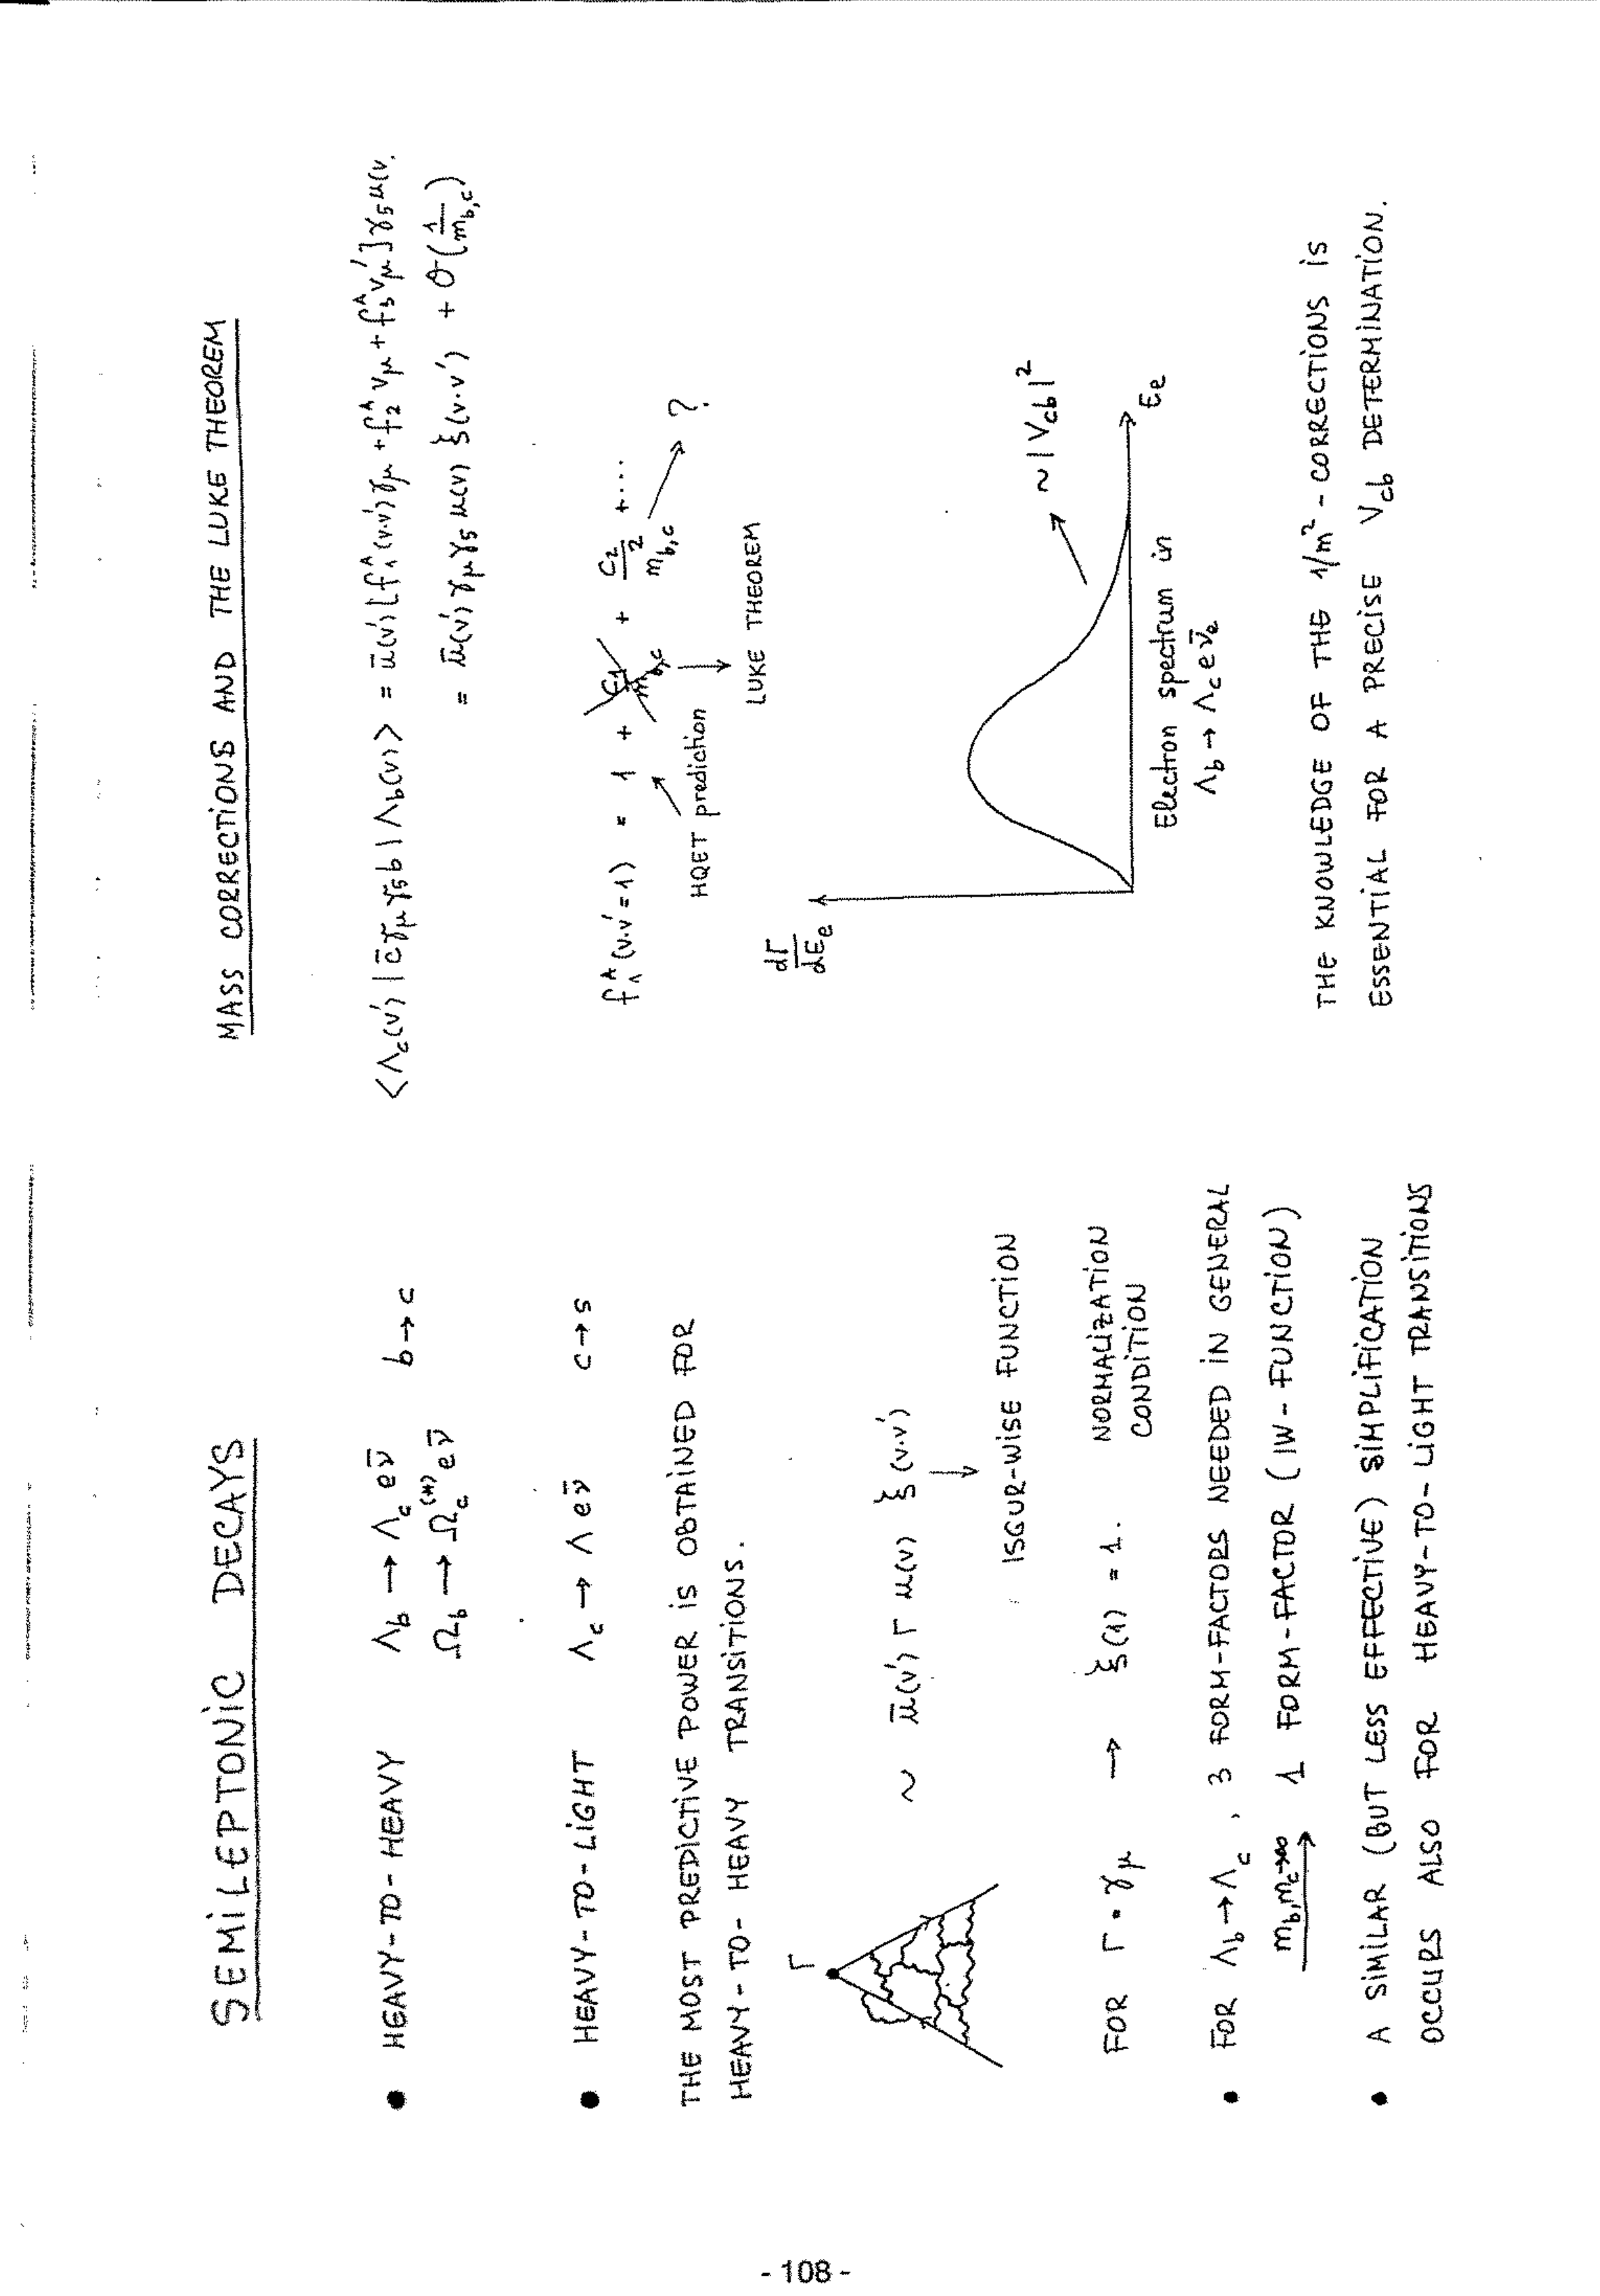 SEMILEPTONIC DECAYS
• HEAVY-TO-HEAVY Λ_b → Λ_c e ν̄ b → c
Ω_b → Ω_c^(*) e ν̄
• HEAVY-TO-LIGHT Λ_c → Λ e ν̄ c → s
THE MOST PREDICTIVE POWER IS OBTAINED FOR
HEAVY-TO-HEAVY TRANSITIONS.
Γ
~ ū(v') Γ u(v) ξ(v·v')
↓
ISGUR-WISE FUNCTION
FOR Γ = γ_μ → ξ(1) = 1. NORMALIZATION
CONDITION
• FOR Λ_b → Λ_c, 3 FORM-FACTORS NEEDED IN GENERAL
m_b, m_c → ∞ 1 FORM-FACTOR (IW-FUNCTION)
• A SIMILAR (BUT LESS EFFECTIVE) SIMPLIFICATION
OCCURS ALSO FOR HEAVY-TO-LIGHT TRANSITIONS
MASS CORRECTIONS AND THE LUKE THEOREM
<Λ_c(v')|c̄ γ_μ γ_5 b|Λ_b(v)> = ū(v')[f_1^A(v·v')γ_μ + f_2^A v_μ + f_3^A v_μ']γ_5 u(v.
= ū(v') γ_μ γ_5 u(v) ξ(v·v') + O(1/m_b,c)
f_1^A(v·v'=1) = 1 + c_1/m_b,c + c_2/m_b,c^2 + ...
?
HQET prediction
LUKE THEOREM
dΓ/dE_e
~|V_cb|^2
E_e
Electron spectrum in
Λ_b → Λ_c e ν̄_e
THE KNOWLEDGE OF THE 1/m^2-CORRECTIONS IS
ESSENTIAL FOR A PRECISE V_cb DETERMINATION.
- 108 -